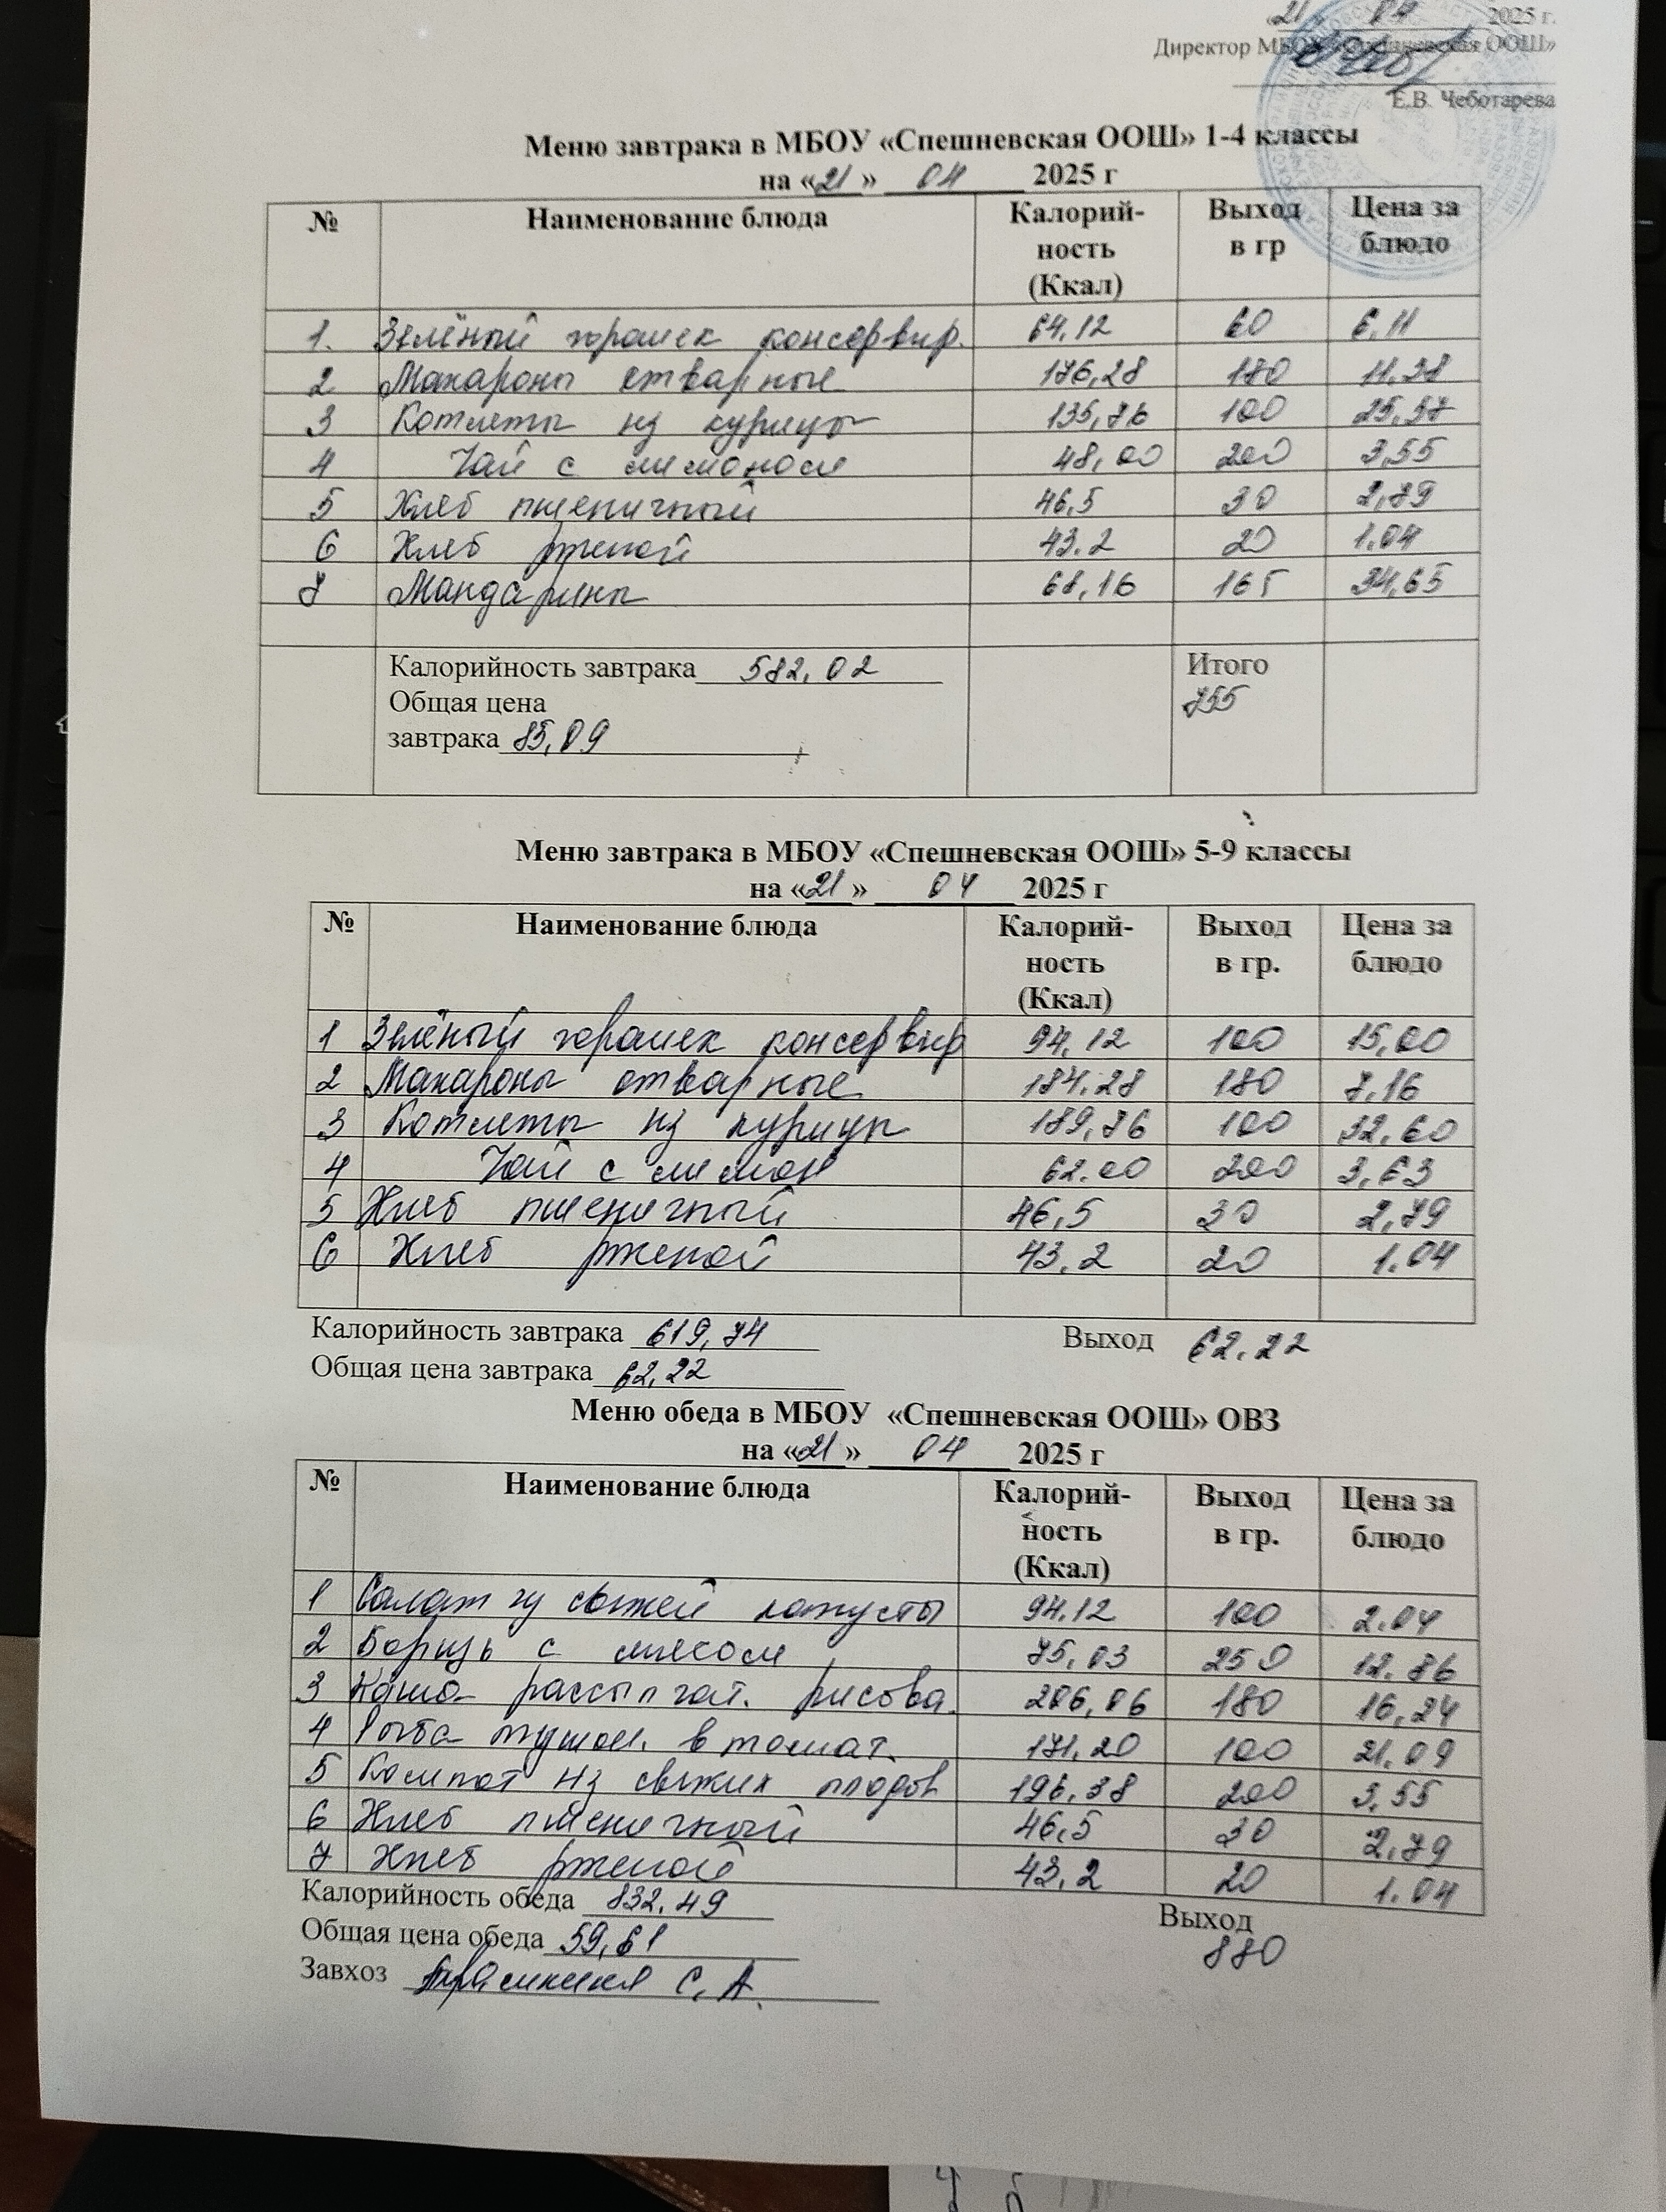 21 04 2025 г.
Директор МБОУ «Спешневская ООШ»
Е.В. Чеботарева
Меню завтрака в МБОУ «Спешневская ООШ» 1-4 классы
на «21» 04 2025 г
№ Наименование блюда Калорий-ность (Ккал) Выход в гр Цена за блюдо
1. Зелёный горошек консервир. 64,12 60 6,11
2 Макароны отварные 176,28 180 11,38
3 Котлеты из курицы 135,76 100 25,57
4 Чай с лимоном 48,00 200 3,55
5 Хлеб пшеничный 46,5 30 2,79
6 Хлеб ржаной 43.2 20 1.04
7 Мандарины 68,16 165 34,65
Калорийность завтрака 582,02 Итого
Общая цена 755
завтрака 85,09
Меню завтрака в МБОУ «Спешневская ООШ» 5-9 классы
на «21» 04 2025 г
№ Наименование блюда Калорий-ность (Ккал) Выход в гр. Цена за блюдо
1 Зелёный горошек консервир 94,12 100 15,00
2 Макароны отварные 184.28 180 7,16
3 Котлеты из курицы 189,76 100 32,60
4 Чай с лимон 62.00 200 3,63
5 Хлеб пшеничный 46,5 30 2,79
6 Хлеб ржаной 43,2 20 1.04
Калорийность завтрака 619,74 Выход 62.22
Общая цена завтрака 62,22
Меню обеда в МБОУ «Спешневская ООШ» ОВЗ
на «21» 04 2025 г
№ Наименование блюда Калорий-ность (Ккал) Выход в гр. Цена за блюдо
1 Салат из свежей капусты 94.12 100 2.04
2 Борщь с мясом 75,03 250 12.86
3 Каша рассыпчат. рисова. 206,06 180 16,24
4 Рыба тушен. в томат. 171,20 100 21.09
5 Компот из свежих плодов 196,38 200 3,55
6 Хлеб пшеничный 46,5 30 2,79
7 Хлеб ржаной 43,2 20 1.04
Калорийность обеда 832,49 Выход
Общая цена обеда 59,61 880
Завхоз С.А.